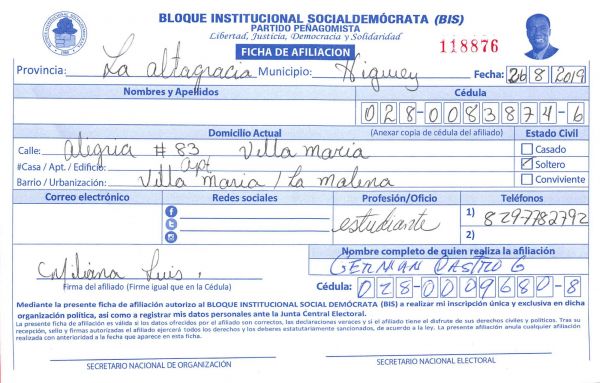 BLOQUE INSTITUCIONAL SOCIALDEMÓCRATA (BIS)
PARTIDO PEÑAGOMISTA
Libertad, Justicia, Democracia y Solidaridad
FICHA DE AFILIACION
118876
Provincia: La altagracia Municipio: Higuey Fecha: 26 8 2019
Nombres y Apellidos Cédula
028-0083874-6
Domicilio Actual (Anexar copia de cédula del afiliado) Estado Civil
Calle: # 83 Villa Maria Casado
#Casa / Apt. / Edificio: apt Soltero
Barrio / Urbanización: Villa maria / La malena Conviviente
Correo electrónico Redes sociales Profesión/Oficio Teléfonos
estudiante 1) 829-7782792
2)
Nombre completo de quien realiza la afiliación
GERMAN CASTRO G
Luis
Firma del afiliado (Firme igual que en la Cédula) Cédula: 028-0009680-8
Mediante la presente ficha de afiliación autorizo al BLOQUE INSTITUCIONAL SOCIAL DEMÓCRATA (BIS) a realizar mi inscripción única y exclusiva en dicha
organización política, así como a registrar mis datos personales ante la Junta Central Electoral.
La presente ficha de afiliación es válida si los datos ofrecidos por el afiliado son correctos, las declaraciones veraces y si el afiliado tiene el disfrute de sus derechos civiles y políticos. Tras su
recepción, sello y firmas autorizadas el afiliado ejercerá todos los derechos y los deberes estatutariamente sancionados, de acuerdo a la ley. La presente afiliación anula cualquier afiliación
realizada con anterioridad a la fecha que aparece en esta ficha.
SECRETARIO NACIONAL DE ORGANIZACIÓN SECRETARIO NACIONAL ELECTORAL